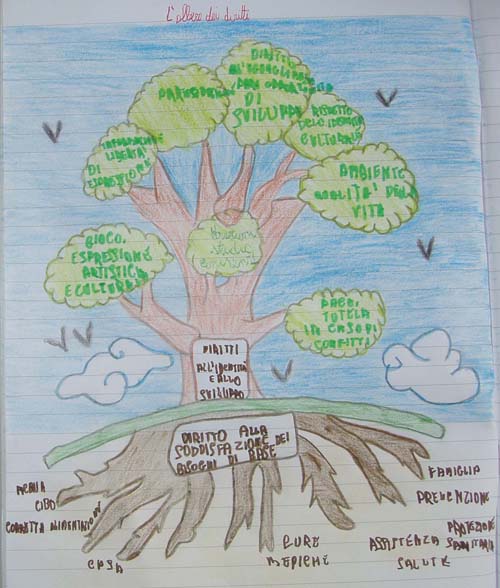 L'albero dei diritti
DIRITTO
ALL'UGUAGLIANZA
PARI OPPORTUNITÀ
DI
SVILUPPO
PARTECIPAZIONE
RISPETTO
DELL'IDENTITÀ
CULTURALE
INFORMAZIONE
LIBERTÀ
DI
ESPRESSIONE
AMBIENTE
QUALITÀ DELLA
VITA
GIOCO.
ESPRESSIONE
ARTISTICA
E CULTURALE
PACE:
TUTELA
IN CASO DI
CONFITTI
DIRITTI
ALL'IDENTITÀ
E ALLO
SVILUPPO
DIRITTO ALLA
SODDISFAZIONE DEI
BISOGNI DI BASE
FAMIGLIA
ACQUA
CIBO
PREVENZIONE
CORRETTA ALIMENTAZIONE
PROTEZIONE
SANITARIA
CASA
CURE
MEDICHE
ASSISTENZA
SALUTE